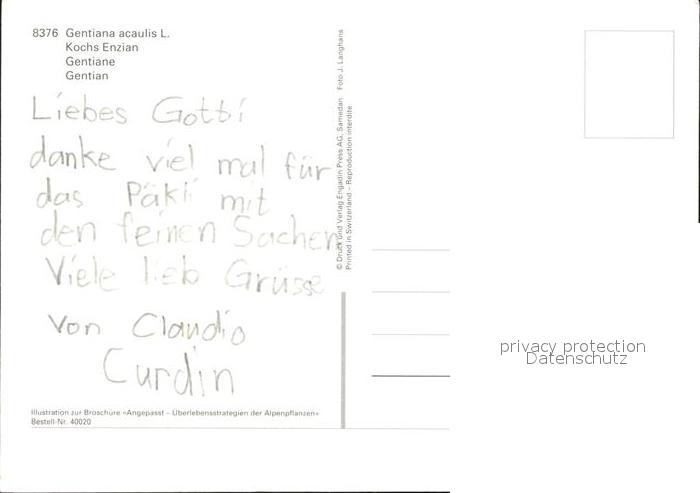 8376 Gentiana acaulis L.
Kochs Enzian
Gentiane
Gentian
Liebes Gotti
danke viel mal für
das Päkli mit
den feinen Sachen
Viele lieb Grüsse
von Claudio
Curdin
Illustration zur Broschüre «Angepasst – Überlebensstrategien der Alpenpflanzen»
Bestell-Nr. 40020
© Druck und Verlag Engadin Press AG, Samedan Foto J. Langhans
Printed in Switzerland – Reproduction interdite
privacy protection
Datenschutz